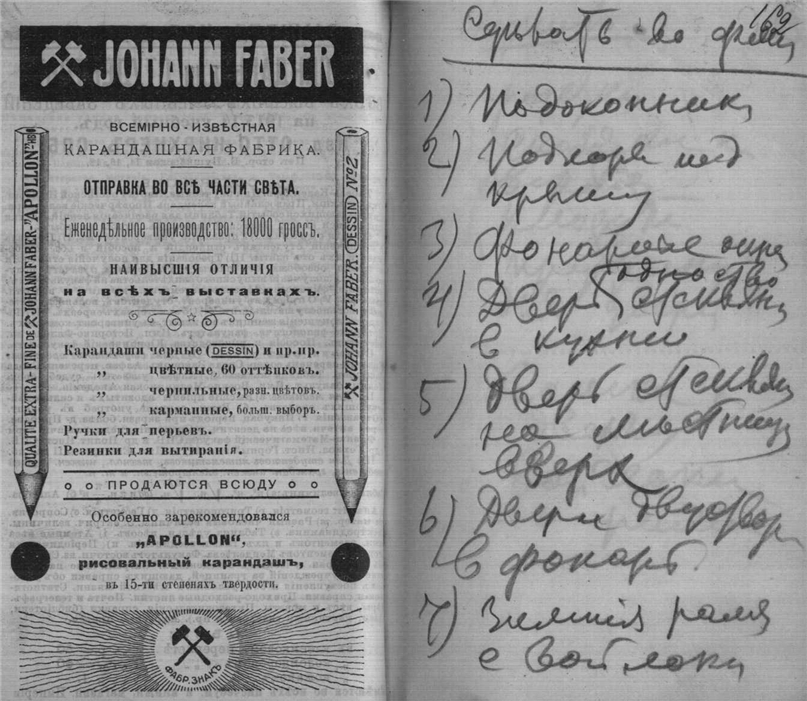 JOHANN FABER
ВСЕМІРНО-ИЗВѢСТНАЯ
КАРАНДАШНАЯ ФАБРИКА.
ОТПРАВКА ВО ВСѢ ЧАСТИ СВѢТА.
Еженедѣльное производство: 18000 гроссъ.
НАИВЫСШІЯ ОТЛИЧІЯ
на всѣхъ выставкахъ.
Карандаши черные (DESSIN) и пр. пр.
„ цвѣтные, 60 оттѣнковъ.
„ чернильные, разн. цвѣтовъ.
„ карманные, больш. выборъ.
Ручки для перьевъ.
Резинки для вытиранія.
ПРОДАЮТСЯ ВСЮДУ
Особенно зарекомендовался
„APOLLON“,
рисовальный карандашъ,
въ 15-ти степеняхъ твердости.
ФАБР. ЗНАКЪ
QUALITE EXTRA-FINE DE JOHANN FABER-"APOLLON"-HB
JOHANN FABER. (DESSIN) No 2
169
во
1) Подоконник
2) под
крышу
3)
4) Дверь
в кухни
5) Дверь
на лѣстницу
вверх
6) Двери
в фонарь
7) Зимнія рамы
с войлоки